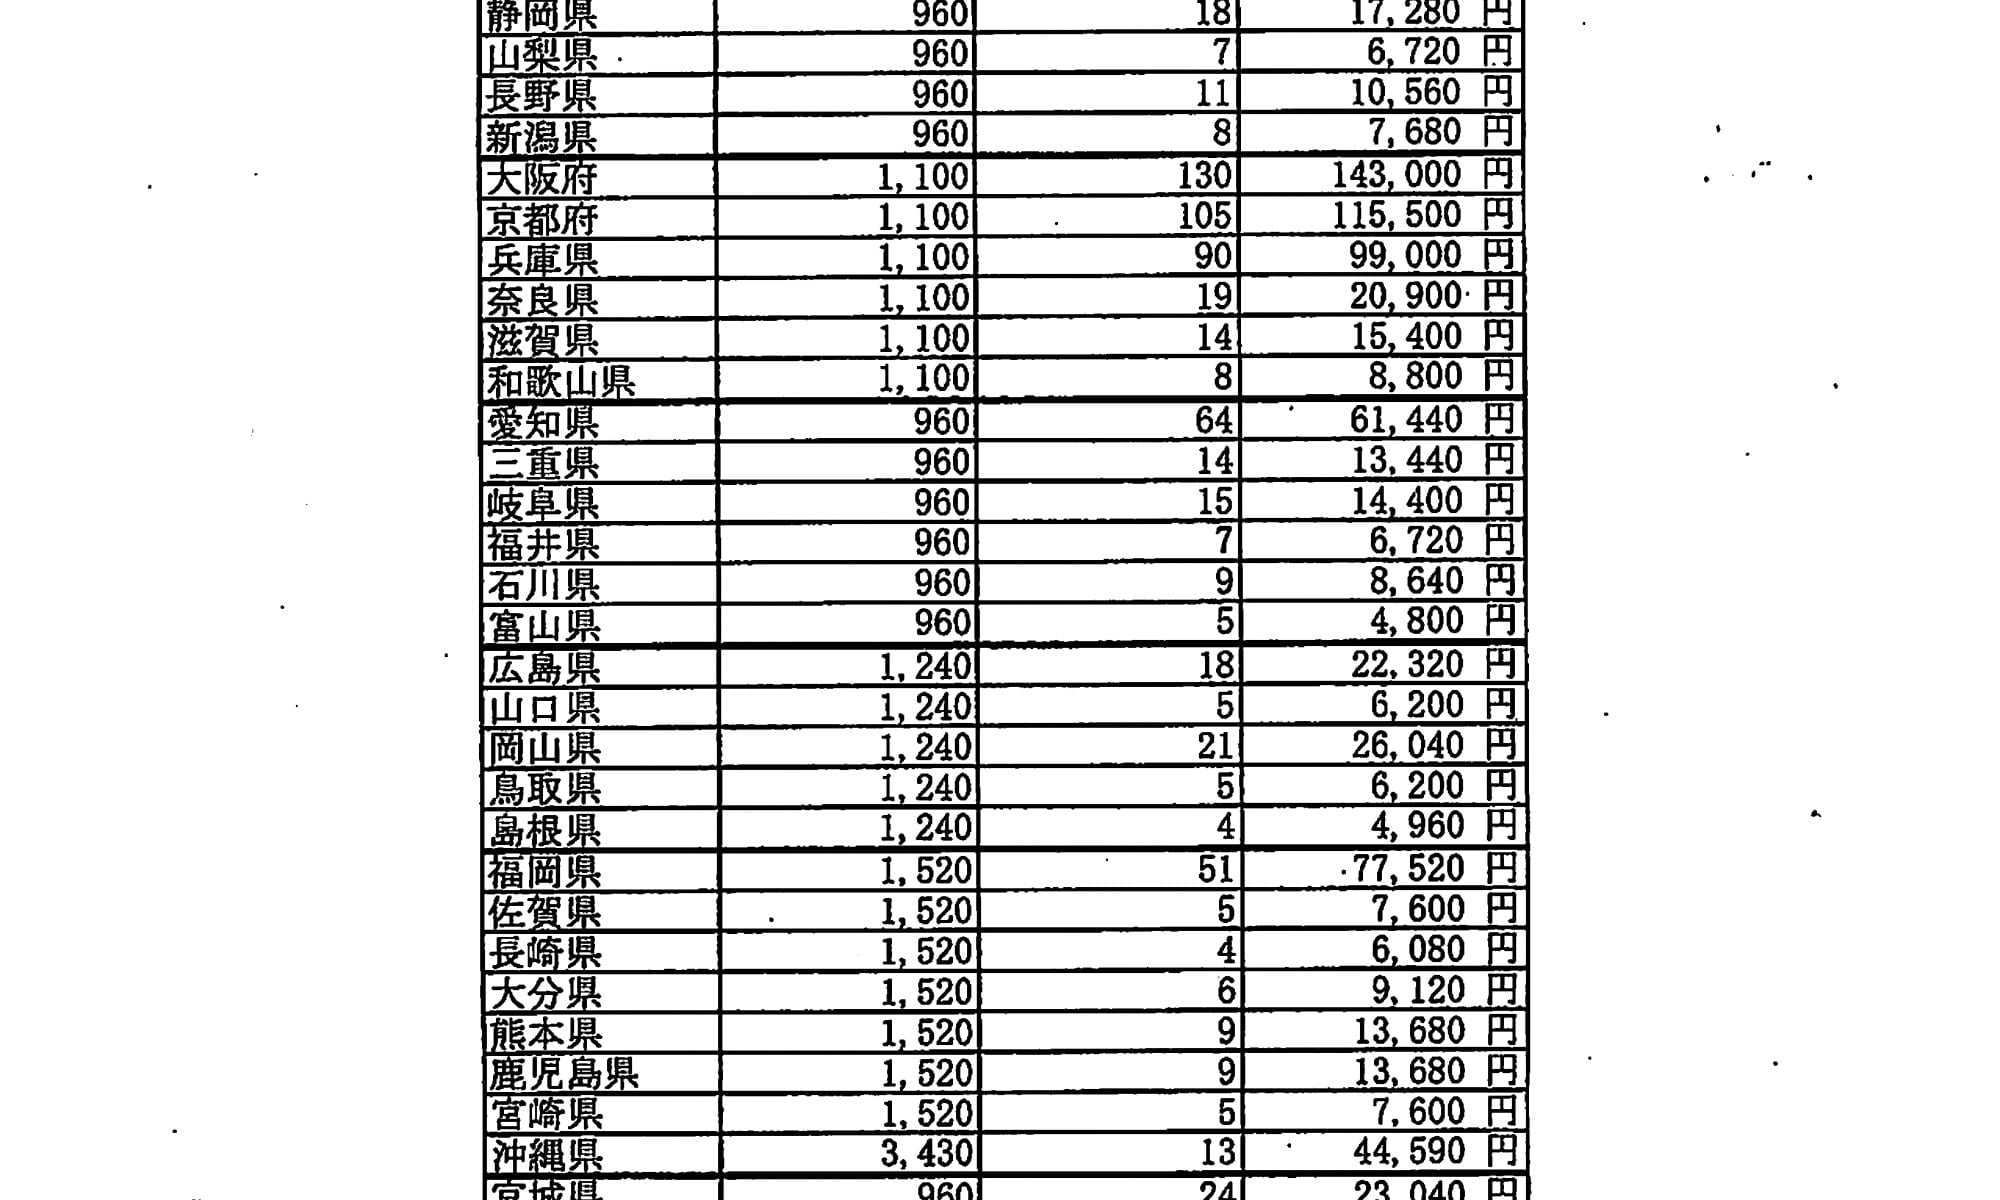 静岡県 960 18 17,280 円
山梨県 960 7 6,720 円
長野県 960 11 10,560 円
新潟県 960 8 7,680 円
大阪府 1,100 130 143,000 円
京都府 1,100 105 115,500 円
兵庫県 1,100 90 99,000 円
奈良県 1,100 19 20,900 円
滋賀県 1,100 14 15,400 円
和歌山県 1,100 8 8,800 円
愛知県 960 64 61,440 円
三重県 960 14 13,440 円
岐阜県 960 15 14,400 円
福井県 960 7 6,720 円
石川県 960 9 8,640 円
富山県 960 5 4,800 円
広島県 1,240 18 22,320 円
山口県 1,240 5 6,200 円
岡山県 1,240 21 26,040 円
鳥取県 1,240 5 6,200 円
島根県 1,240 4 4,960 円
福岡県 1,520 51 77,520 円
佐賀県 1,520 5 7,600 円
長崎県 1,520 4 6,080 円
大分県 1,520 6 9,120 円
熊本県 1,520 9 13,680 円
鹿児島県 1,520 9 13,680 円
宮崎県 1,520 5 7,600 円
沖縄県 3,430 13 44,590 円
宮城県 960 24 23,040 円